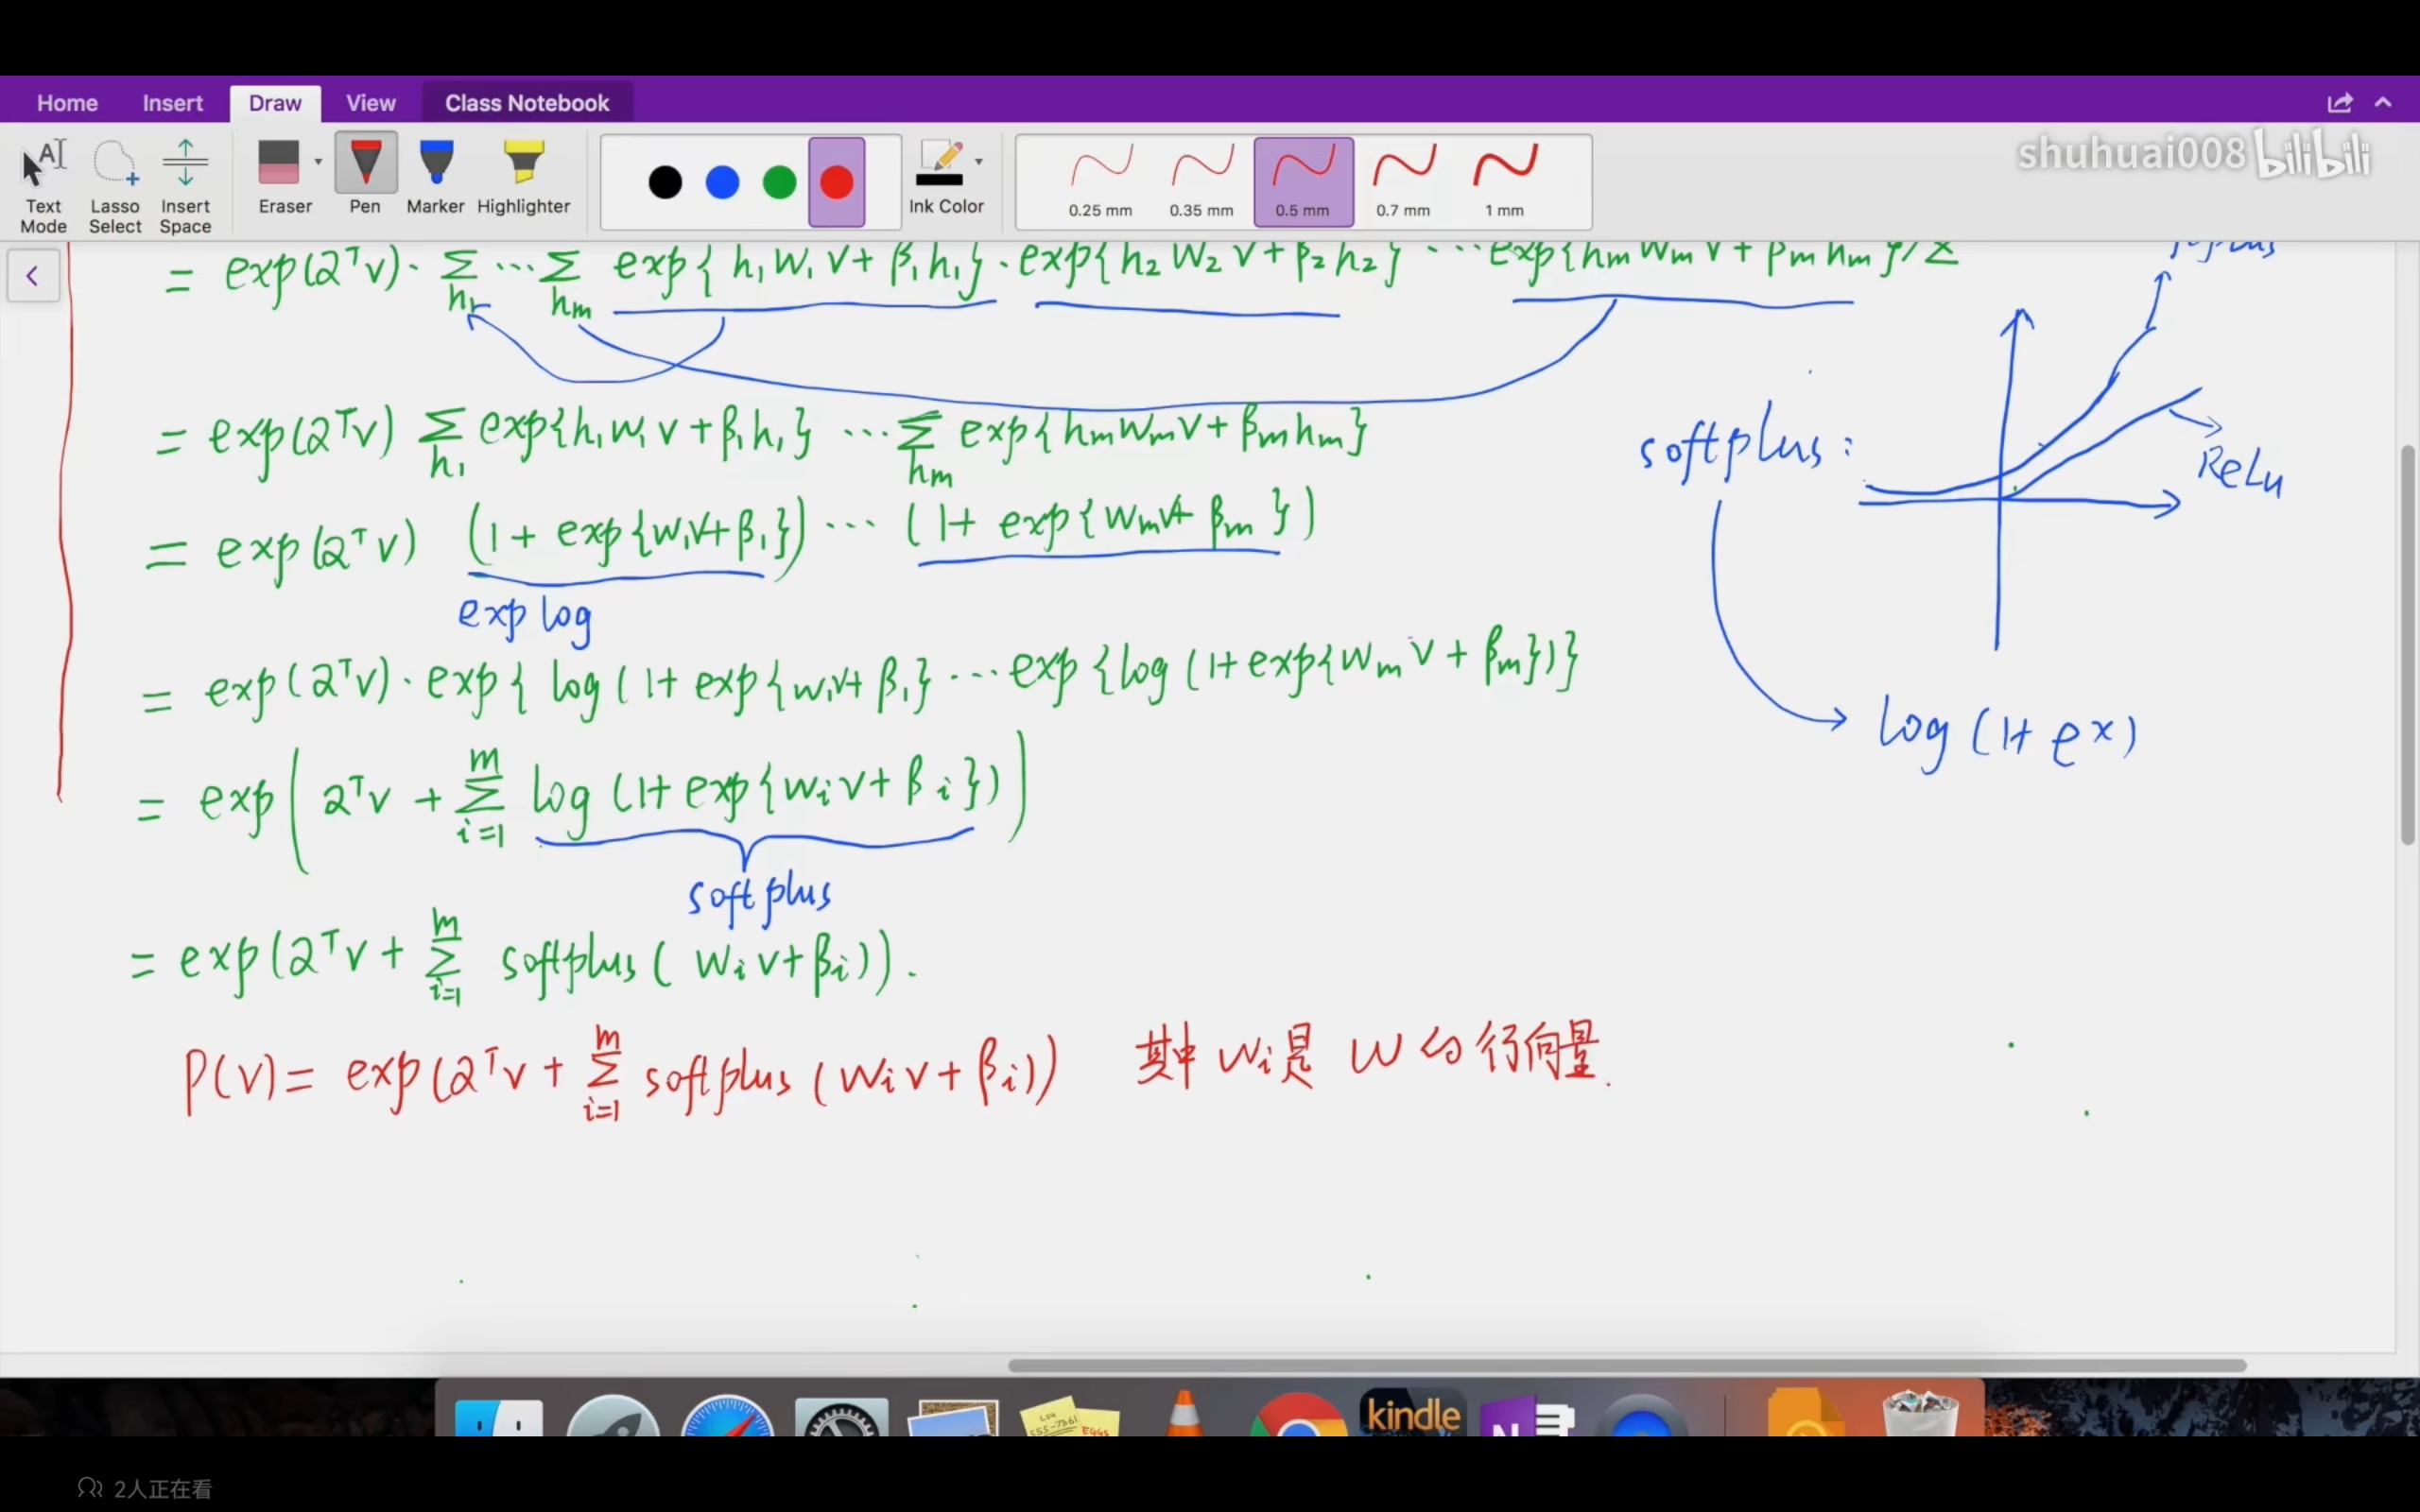 Home Insert Draw View Class Notebook
Text Mode Lasso Select Insert Space Eraser Pen Marker Highlighter Ink Color 0.25 mm 0.35 mm 0.5 mm 0.7 mm 1 mm
shuhuai008 bilibili
= exp(α^T v)· Σ_{h1} ··· Σ_{hm} exp{h1 w1 v + β1 h1}·exp{h2 w2 v + β2 h2} ··· exp{hm wm v + βm hm}/Z
= exp(α^T v) Σ_{h1} exp{h1 w1 v + β1 h1} ··· Σ_{hm} exp{hm wm v + βm hm}
softplus:
ReLu
= exp(α^T v) (1 + exp{w1 v + β1}) ··· (1 + exp{wm v + βm})
exp log
= exp(α^T v)·exp{log(1 + exp{w1 v + β1} ··· exp{log(1 + exp{wm v + βm})}
log(1 + e^x)
= exp(α^T v + Σ_{i=1}^{m} log(1 + exp{wi v + βi}))
softplus
= exp(α^T v + Σ_{i=1}^{m} softplus(wi v + βi)).
P(v) = exp(α^T v + Σ_{i=1}^{m} softplus(wi v + βi)) 其中 wi是 W 的行向量.
kindle
N
2人正在看